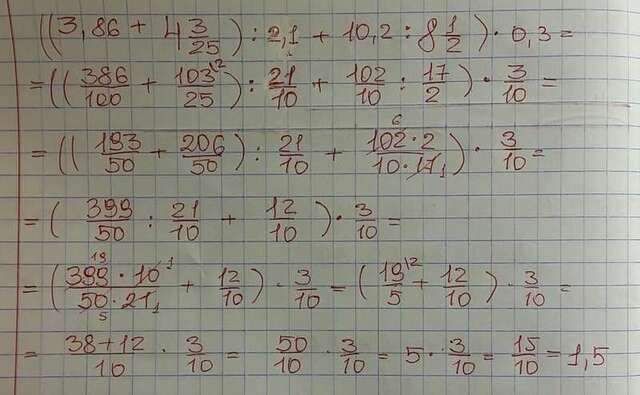 ((3,86 + 4 3/25) : 2,1 + 10,2 : 8 1/2) · 0,3 =
= ((386/100 + 103/25 \2) : 21/10 + 102/10 : 17/2) · 3/10 =
= ((193/50 + 206/50) : 21/10 + 102 · 2/10 · 17 6 1) · 3/10 =
= (399/50 : 21/10 + 12/10) · 3/10 =
= (399 · 10/50 · 21 19 1 5 1 + 12/10) · 3/10 = (19/5 \2 + 12/10) · 3/10 =
= 38+12/10 · 3/10 = 50/10 · 3/10 = 5 · 3/10 = 15/10 = 1,5